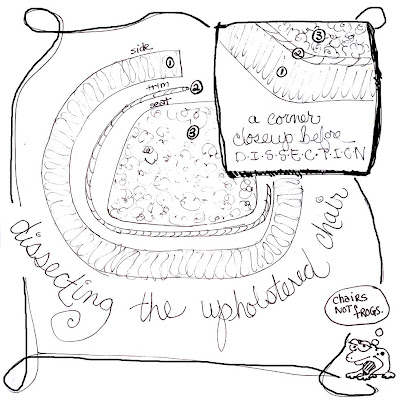 side
1
trim
2
seat
3
3
2
1
a corner
closeup before
D.I.S.S.E.C.T.I.O.N
dissecting the upholstered chair
chairs
NOT FROGS.